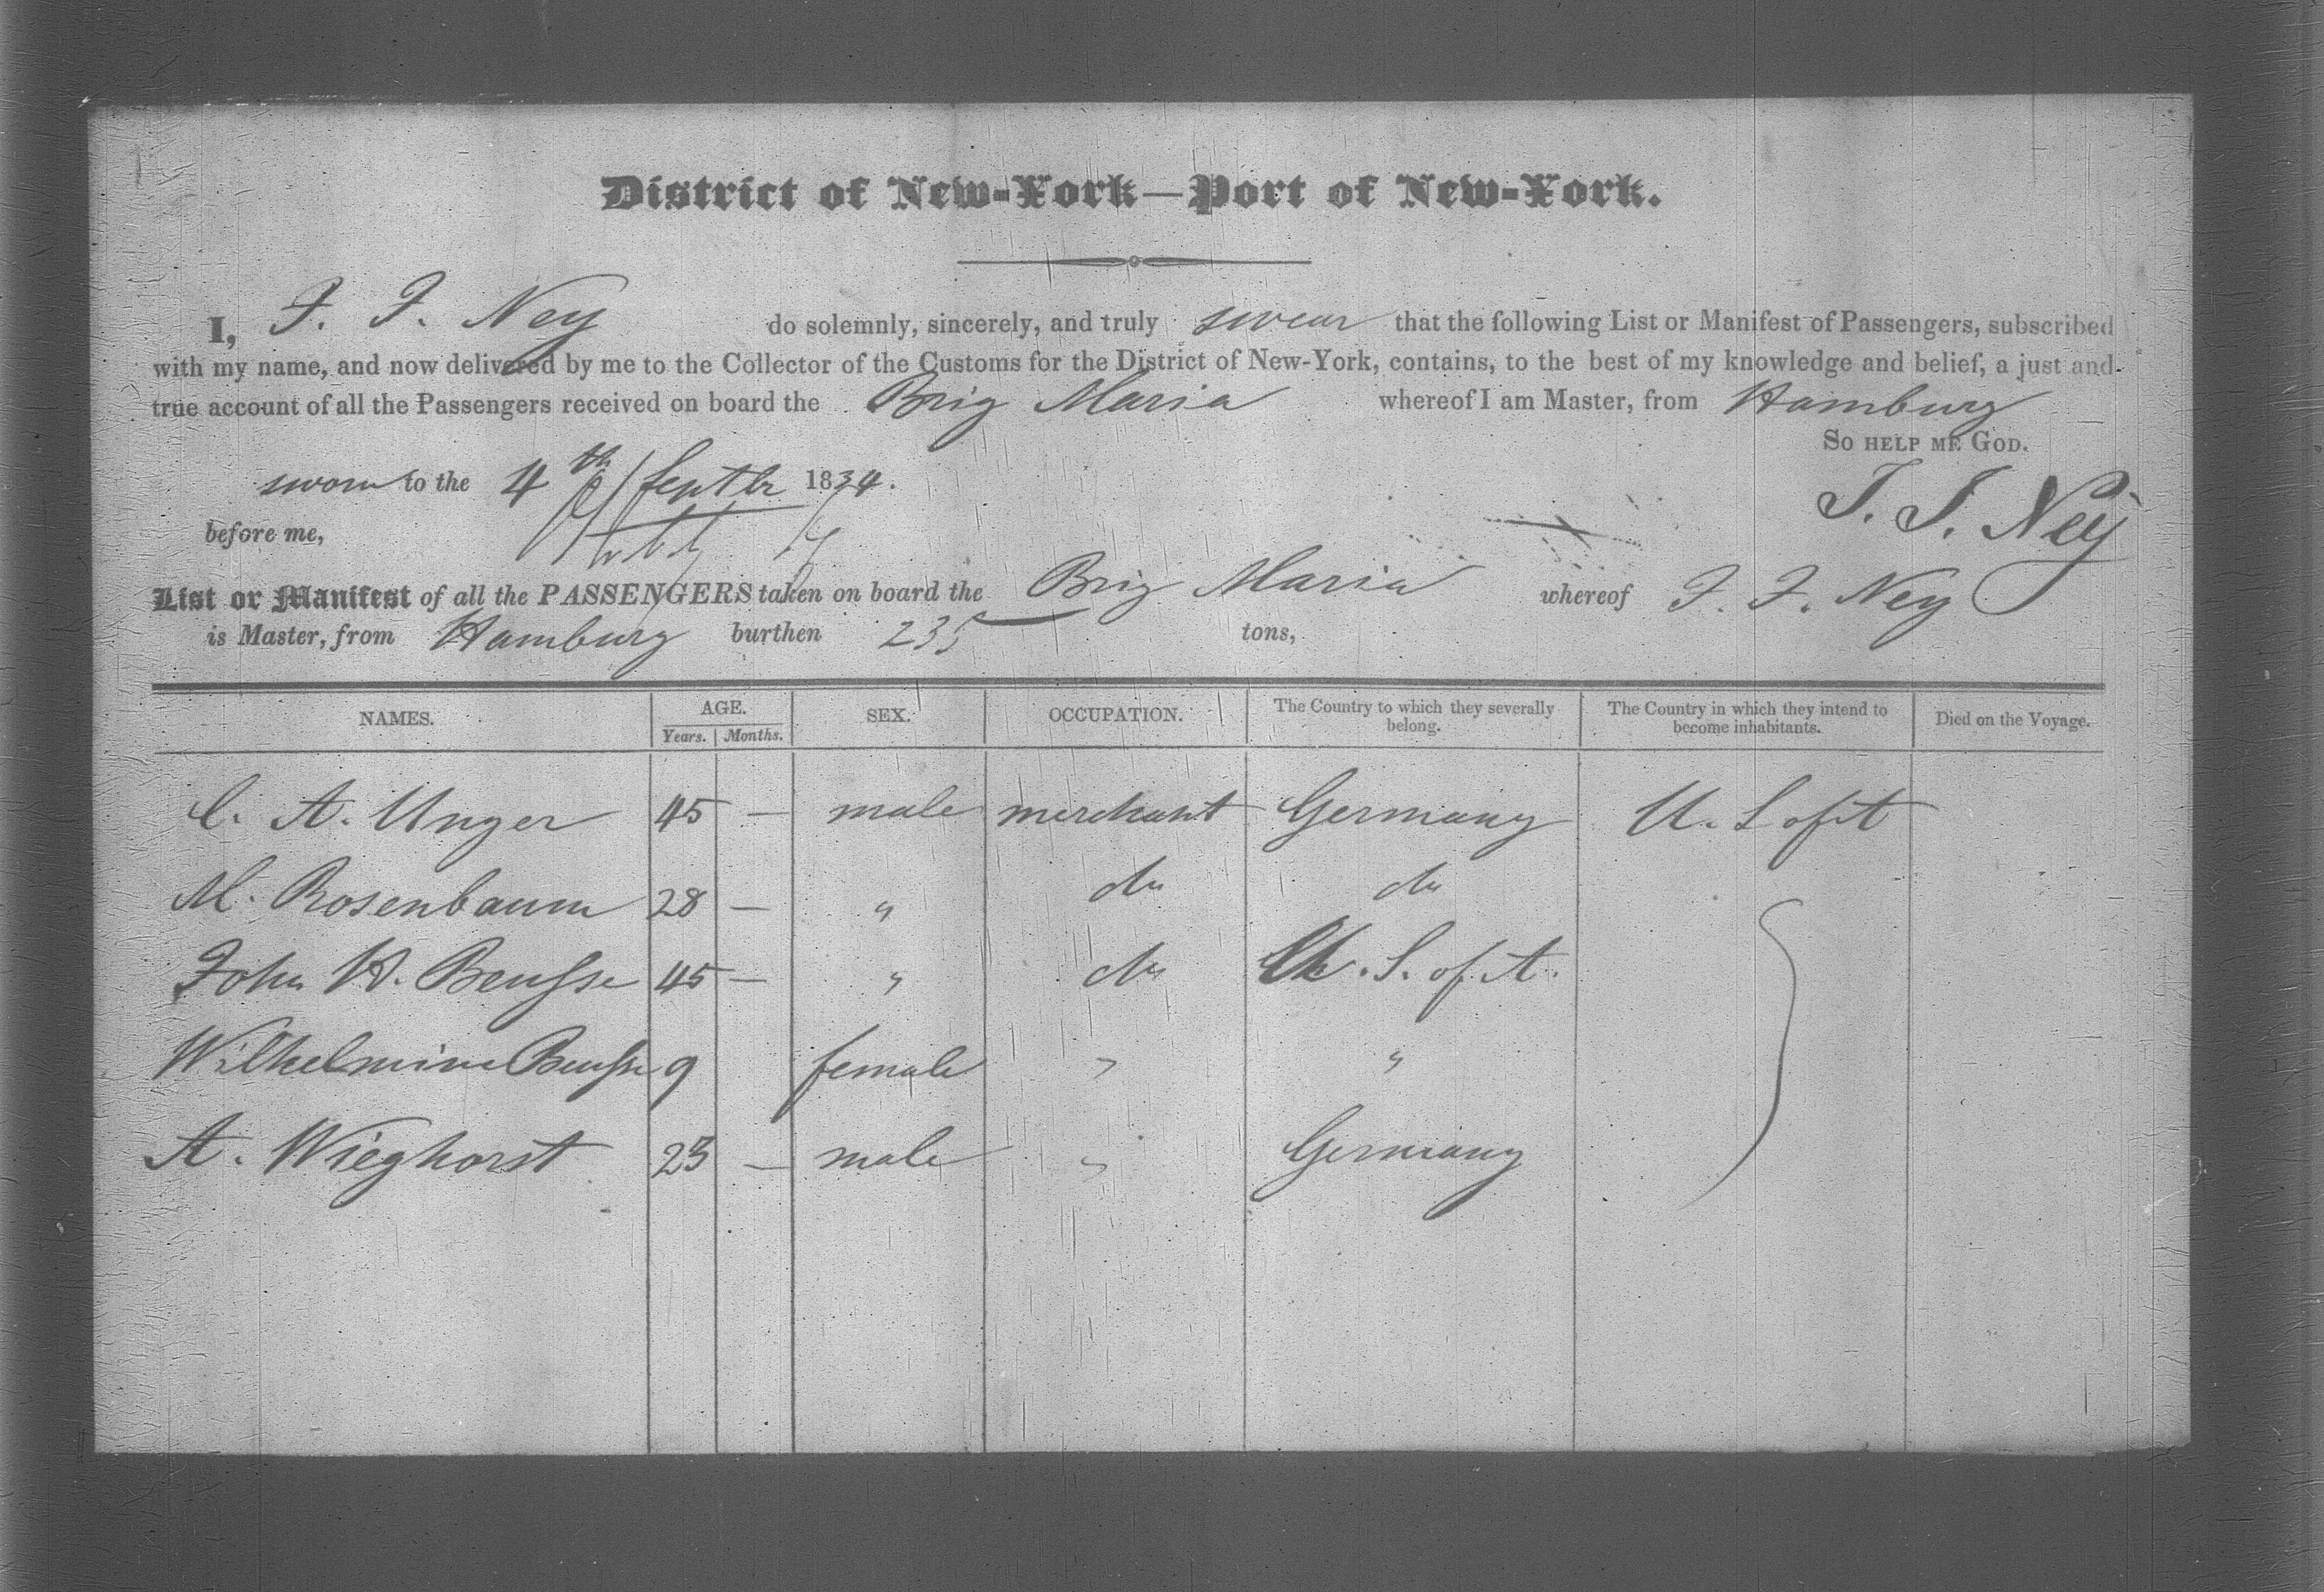 District of New-York—Port of New-York.
I, J. J. Ney do solemnly, sincerely, and truly swear that the following List or Manifest of Passengers, subscribed
with my name, and now delivered by me to the Collector of the Customs for the District of New-York, contains, to the best of my knowledge and belief, a just and
true account of all the Passengers received on board the Brig Maria whereof I am Master, from Hamburg
So help me God.
sworn to the 4th Septbr 1834.
J. J. Ney
before me,
List or Manifest of all the PASSENGERS taken on board the Brig Maria whereof J. J. Ney
is Master, from Hamburg burthen 235 tons,
NAMES. AGE. Years. Months. SEX. OCCUPATION. The Country to which they severally belong. The Country in which they intend to become inhabitants. Died on the Voyage.
C. A. Unger 45 — male merchant Germany U. S of A
M. Rosenbaum 28 — " do do
John H. Beusse 45 — " do U. S. of A.
Wilhelmine Beusse 9 female " "
A. Wieghorst 23 — male " Germany